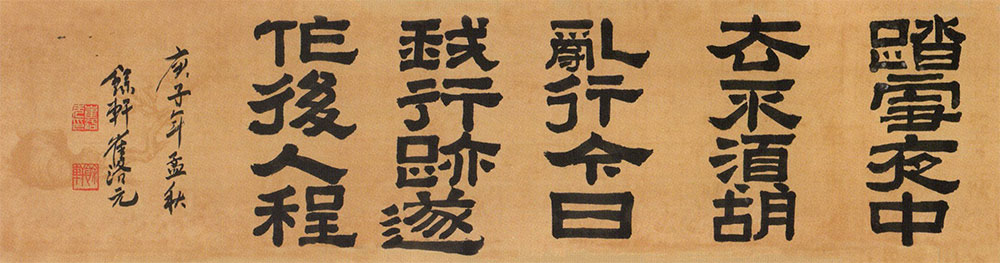 踏雪夜中
去不須胡
亂行今日
我行跡遂
作後人程
庚子年孟秋
軒崔洛元